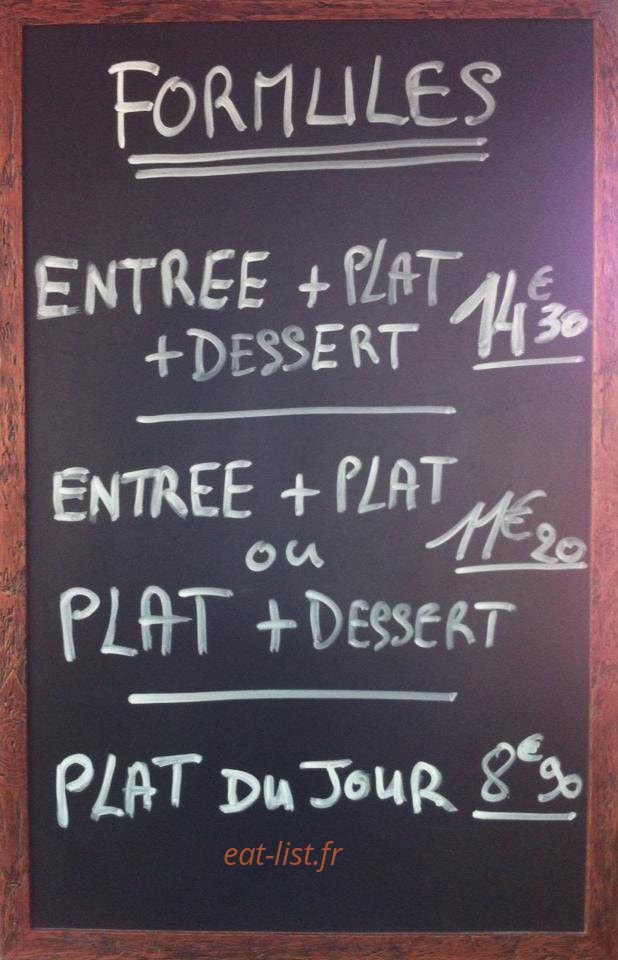 FORMULES
ENTREE + PLAT 14€30
+ DESSERT
ENTREE + PLAT
ou 11€20
PLAT + DESSERT
PLAT DU JOUR 8€90
eat-list.fr